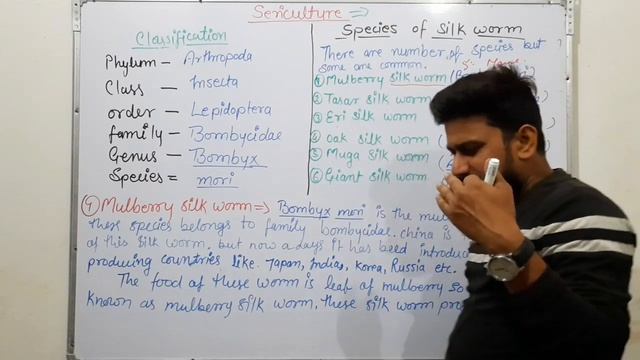 Sericulture ⇒
Classification
Phylum — Arthropoda
Class — Insecta
order — Lepidoptera
family — Bombycidae
Genus — Bombyx
Species = mori
Species of silk worm
There are number of species but
some are common.
① Mulberry silk worm (
② Tasar silk worm
③ Eri silk worm
④ Oak silk worm (
⑤ Muga silk worm (
⑥ Giant silk worm.
① Mulberry silk worm ⇒ Bombyx mori is the
These species belongs to family bombycidae. china is
of this silk worm. but now a days it has been
producing countries like. Japan, Indias, Korea, Russia etc.
The food of these worm is leaf of mulberry so
known as mulberry silk worm, these silk worm